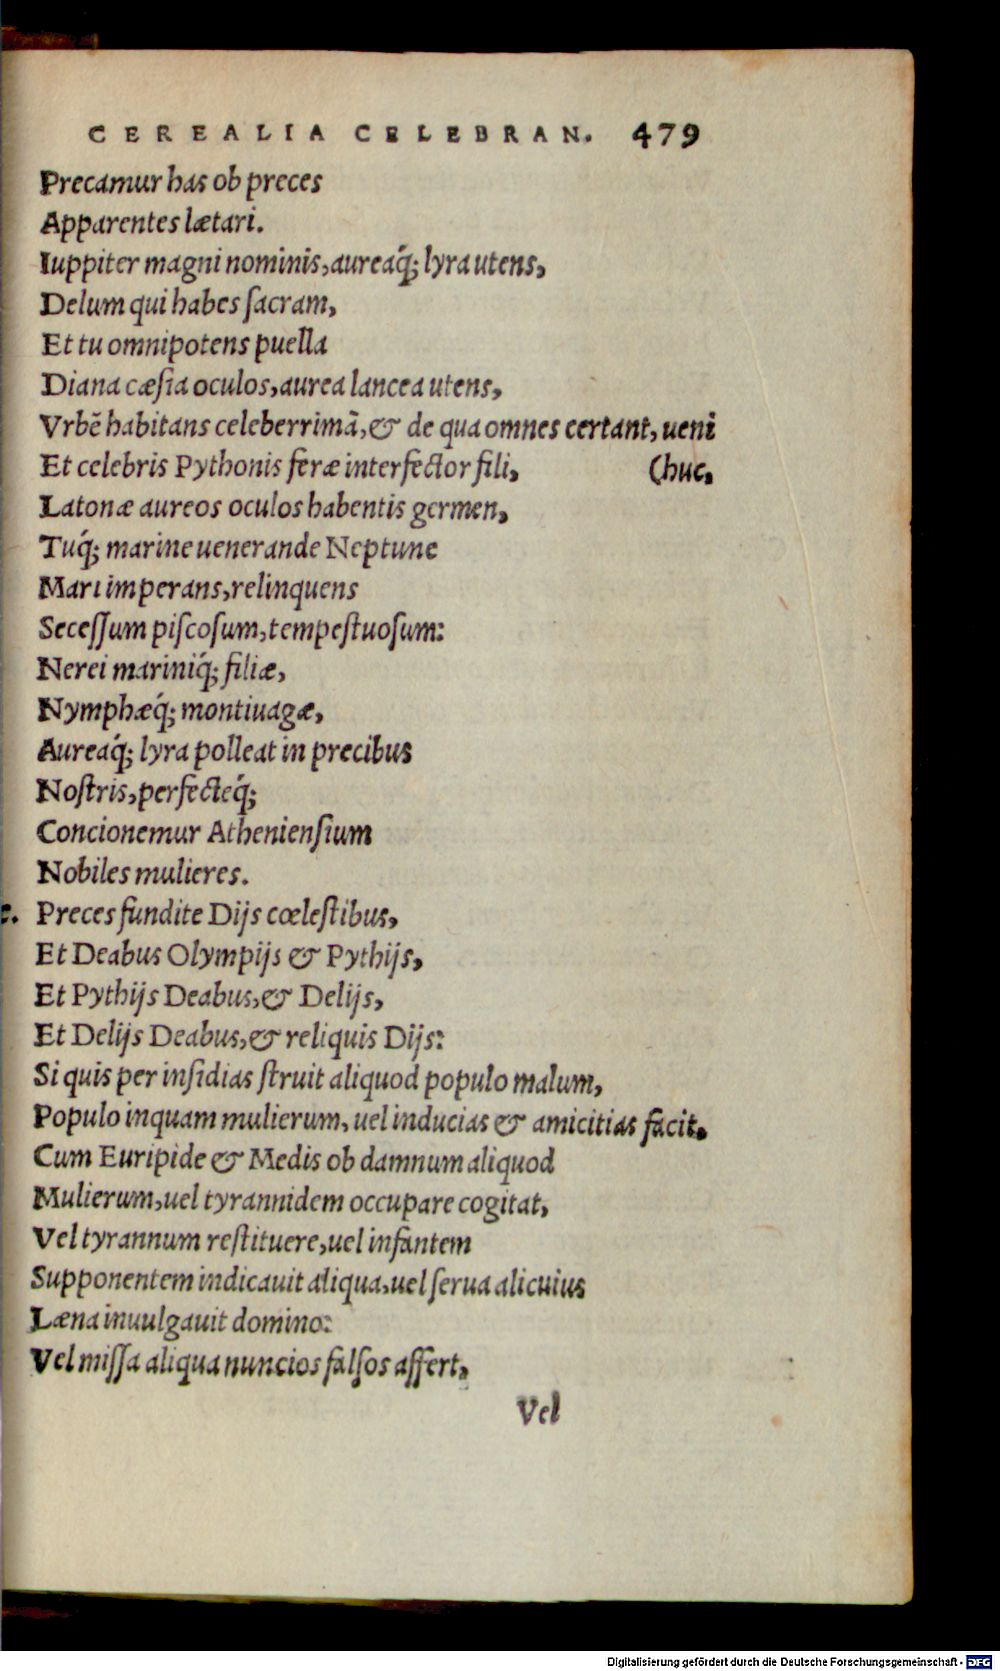 CEREALIA CELEBRAN. 479
Precamur has ob preces
Apparentes lætari.
Iuppiter magni nominis, aureaq́; lyra utens,
Delum qui habes ſacram,
Et tu omnipotens puella
Diana cæſia oculos, aurea lancea utens,
Vrbẽ habitans celeberrimã, & de qua omnes certant, ueni
Et celebris Pythonis feræ interfector fili, (huc,
Latonæ aureos oculos habentis germen,
Tuq́; marine uenerande Neptune
Mari imperans, relinquens
Seceſſum piſcoſum, tempeſtuoſum:
Nerei mariniq́; filiæ,
Nymphæq́; montiuagæ,
Aureaq́; lyra polleat in precibus
Noſtris, perfecteq́;
Concionemur Athenienſium
Nobiles mulieres.
c. Preces fundite Dijs cœleſtibus,
Et Deabus Olympijs & Pythijs,
Et Pythijs Deabus, & Delijs,
Et Delijs Deabus, & reliquis Dijs:
Si quis per inſidias ſtruit aliquod populo malum,
Populo inquam mulierum, uel inducias & amicitias facit.
Cum Euripide & Medis ob damnum aliquod
Mulierum, uel tyrannidem occupare cogitat,
Vel tyrannum reſtituere, uel infantem
Supponentem indicauit aliqua, uel ſerua alicuius
Læna inuulgauit domino:
Vel miſſa aliqua nuncios falſos affert,
Vel
Digitalisierung gefördert durch die Deutsche Forschungsgemeinschaft - DFG